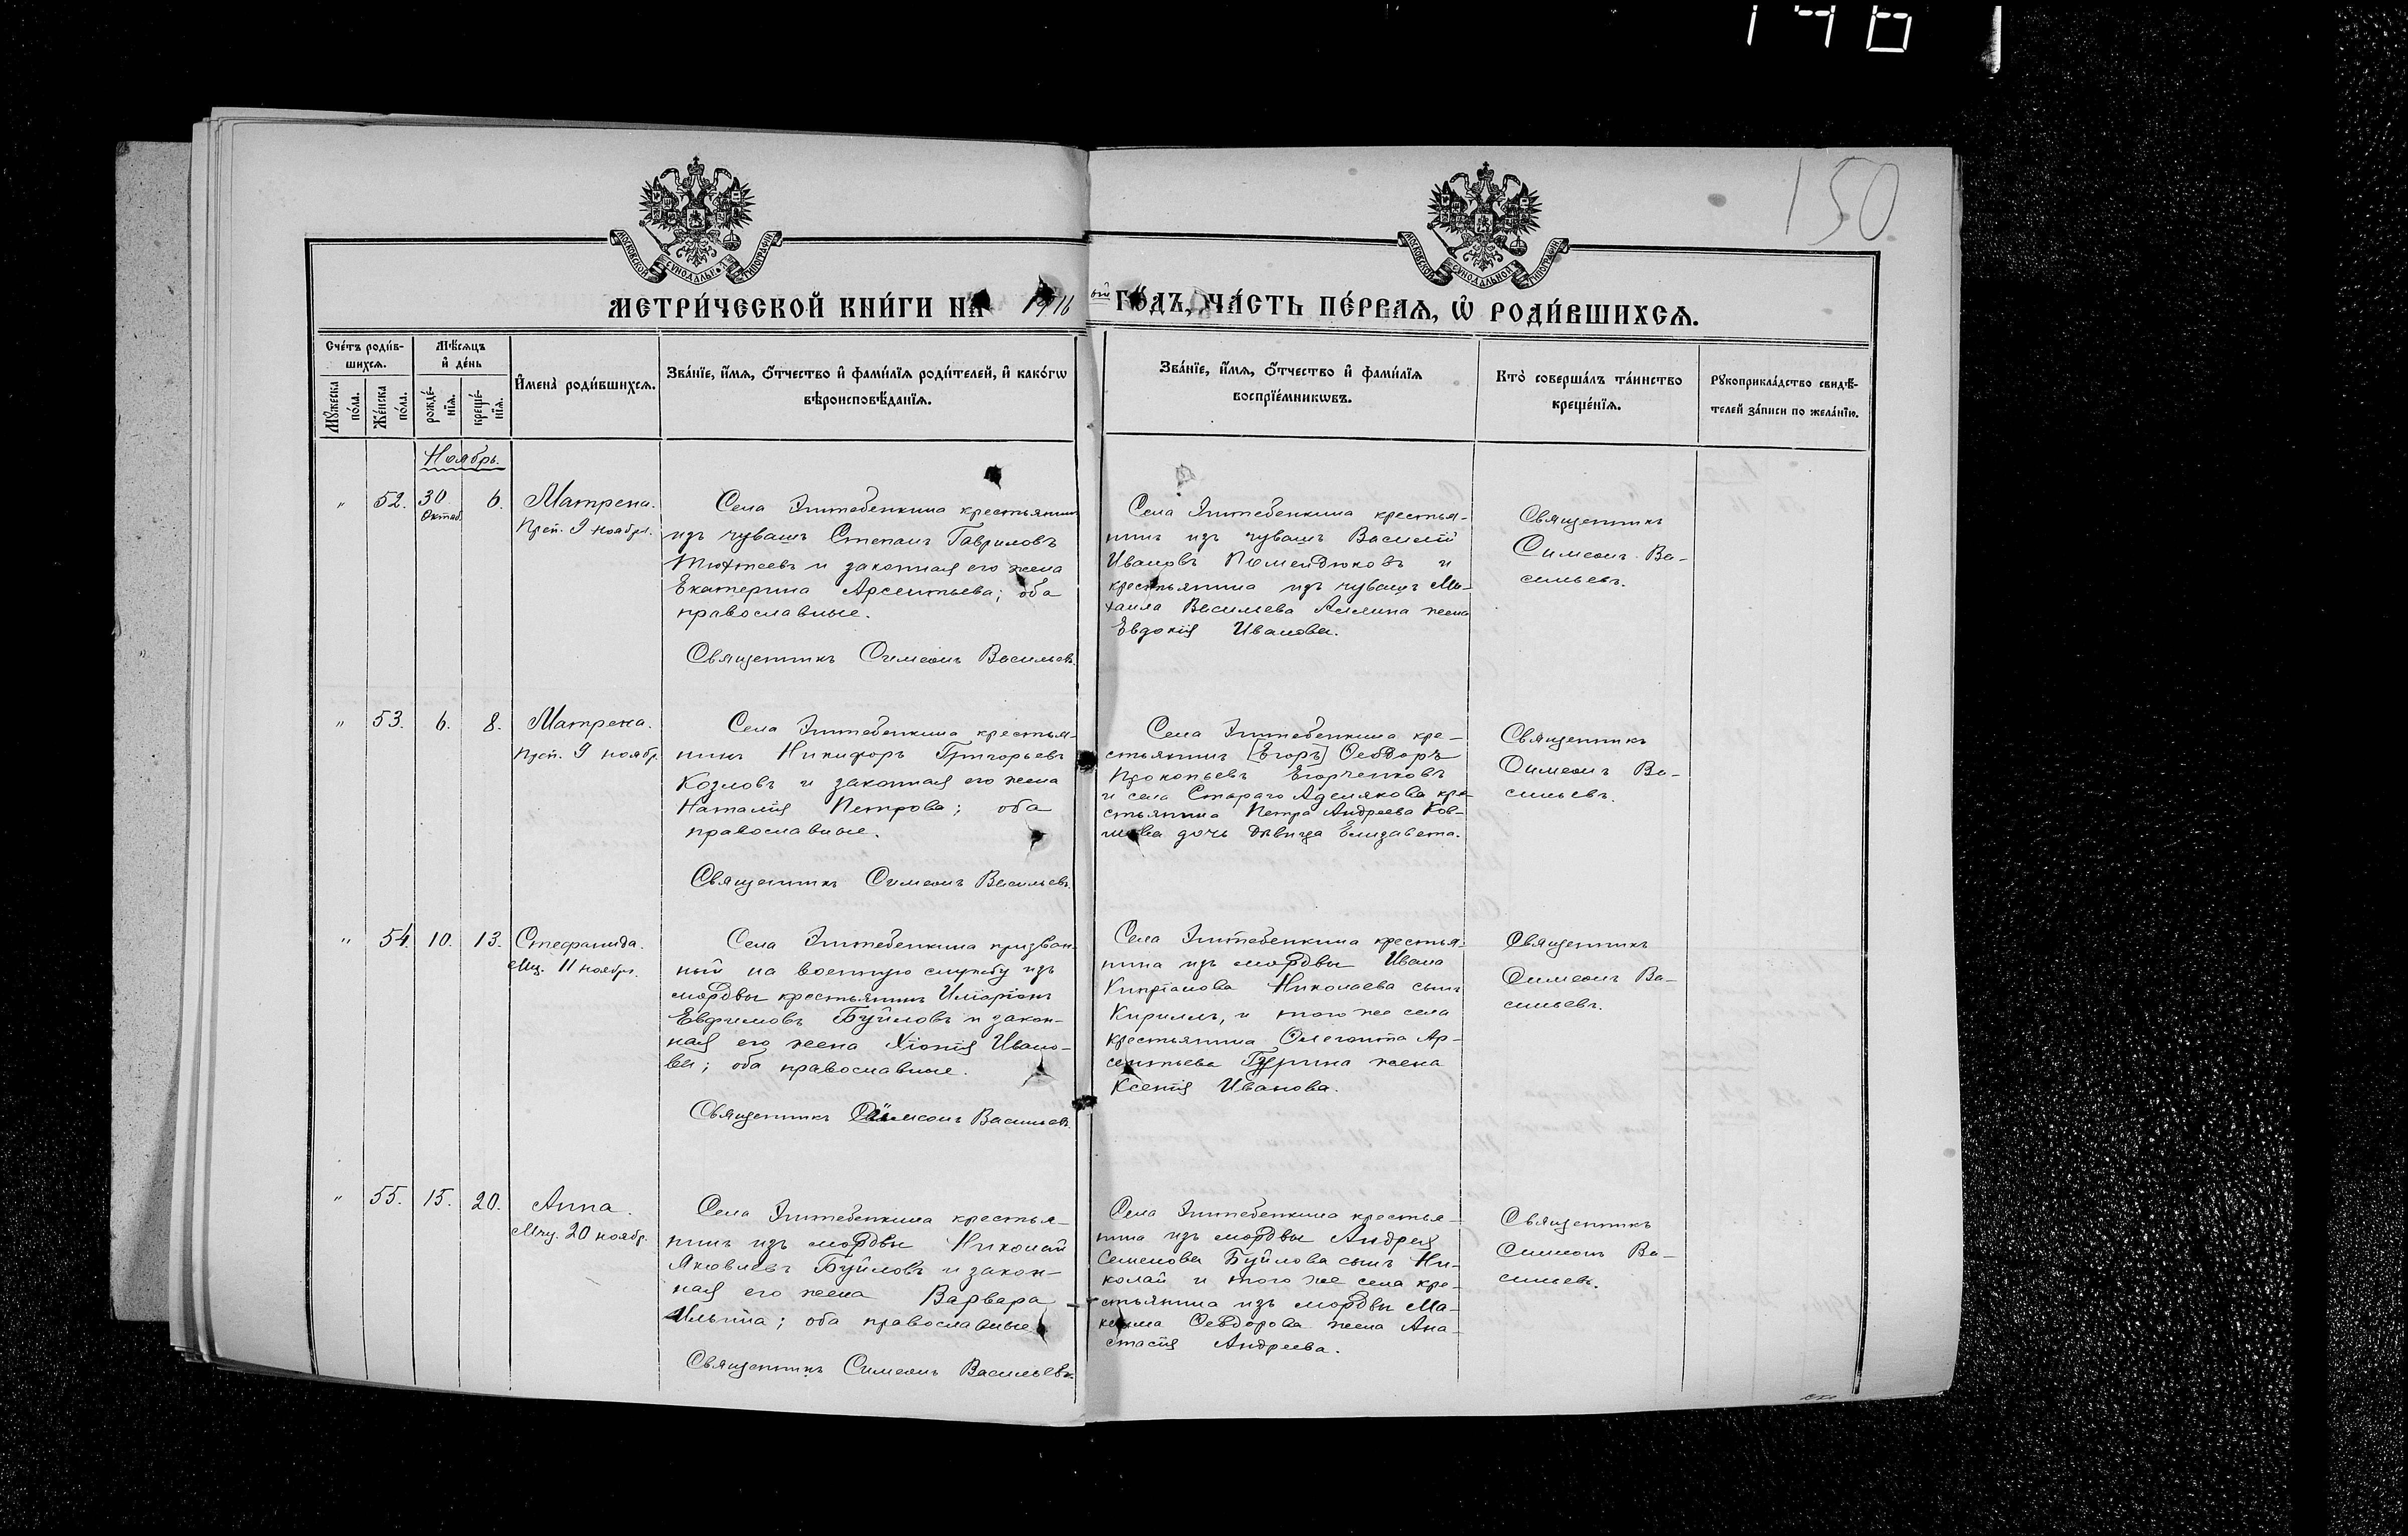 150
МЕТРИ́ЧЕСКОЙ КНИ́ГИ НА 1916 ой ГО́ДЪ, ЧА́СТЬ ПЕ́РВАѦ, Ѡ҆ РОДИ́ВШИХСѦ.
Сче́тъ роди́вшихсѧ.
Мꙋ́жеска по́ла.
Же́нска по́ла.
Мѣ́сѧцъ и҆ де́нь
рожде́нїѧ.
креще́нїѧ.
И҆мена̀ роди́вшихсѧ.
Зва́нїе, и҆́мѧ, ѻ҆́тчество и҆ фами́лїѧ роди́телей, и҆ како́гѡ
вѣроисповѣ́данїѧ.
Зва́нїе, и҆́мѧ, ѻ҆́тчество и҆ фами́лїѧ
воспрїе́мникѡвъ.
Кто̀ соверша́лъ та́инство
креще́нїѧ.
Рꙋкоприкла́дство свидѣ́-
телей за́писи по жела́нїю.
Ноябрь.
" 52. 30 Октяб. 6.
Матрена.
Преп. 9 ноября.
Села Эштебенкина крестьянинъ
изъ чувашъ Степанъ Гавриловъ
Тюхтеевъ и законная его жена
Екатерина Арсентьева; оба
православные.
Священникъ Симеонъ Васильевъ.
Села Эштебенкина крестья-
нинъ изъ чувашъ Василій
Ивановъ Помендюковъ и
крестьянина изъ чувашъ Ми-
хаила Васильева Алялина жена
Евдокія Иванова.
Священникъ
Симеонъ Ва-
сильевъ.
" 53. 6. 8.
Матрена.
Преп. 9 ноябр.
Села Эштебенкина крестья-
нинъ Никифоръ Григорьевъ
Козловъ и законная его жена
Наталія Петрова; оба
православные.
Священникъ Симеонъ Васильевъ.
Села Эштебенкина кре-
стьянинъ [Егоръ] Ѳеодоръ
Прокопьевъ Егорченковъ
и села Стараго Аделякова кре-
стьянина Петра Андреева Ков-
дочь дѣвица Елизавета.
Священникъ
Симеонъ Ва-
сильевъ.
" 54. 10. 13.
Стефанида.
Мц. 11 ноября.
Села Эштебенкина призван-
ный на военную службу изъ
мордвы крестьянинъ Иларіонъ
Евфимовъ Буйловъ и закон-
ная его жена Хіонія Ивано-
ва; оба православные.
Священникъ Симеонъ Васильевъ.
Села Эштебенкина крестья-
нина изъ мордвы Ивана
Кипріанова Николаева сынъ
Кириллъ, и того же села
крестьянина Олегонта Ар-
сентьева жена
Ксенія Иванова.
Священникъ
Симеонъ Ва-
сильевъ.
" 55. 15. 20.
Анна.
Мчц. 20 ноябр.
Села Эштебенкина крестья-
нинъ изъ мордвы Николай
Яковлевъ Буйловъ и закон-
ная его жена Варвара
Ильина; оба православные.
Священникъ Симеонъ Васильевъ.
Села Эштебенкина крестья-
нина изъ мордвы Андрея
Семенова Буйлова сынъ Ни-
колай и того же села кре-
стьянина изъ мордвы Ма-
ксима Ѳеодорова жена Ана-
стасія Андреева.
Священникъ
Симеонъ Ва-
сильевъ.